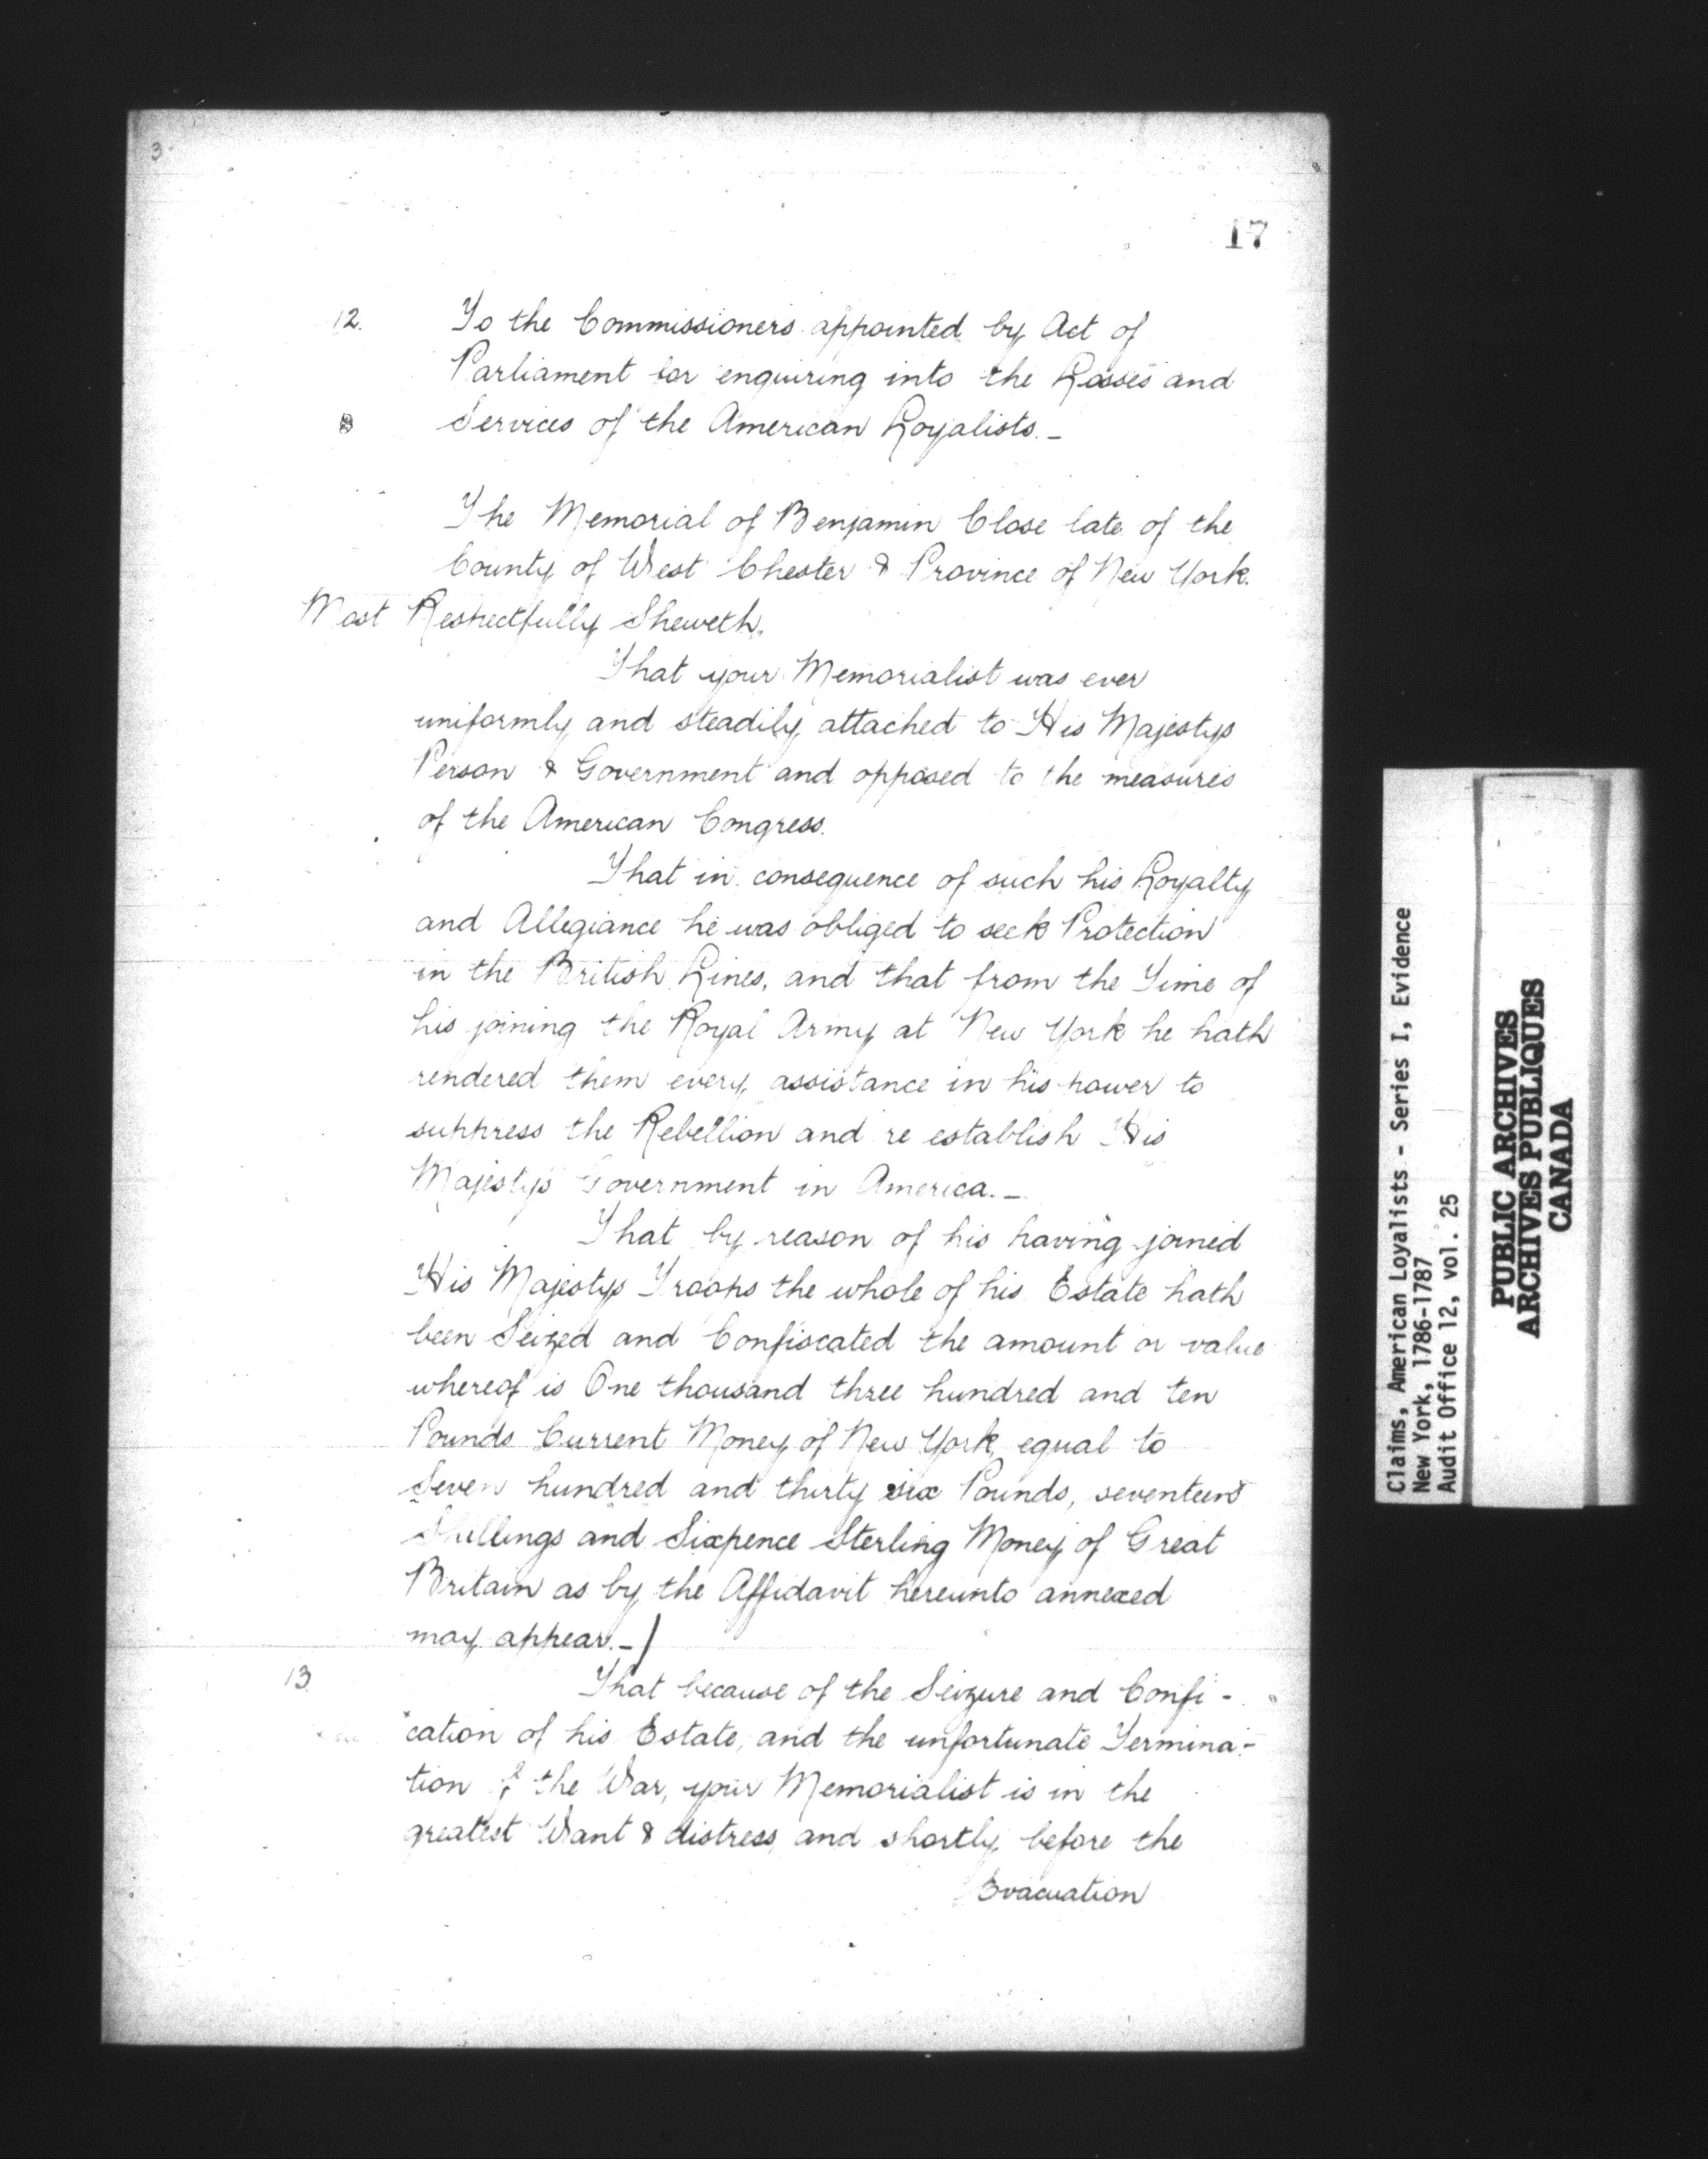 3
17
12.
To the Commissioners appointed by Act of
Parliament for enquiring into the Losses and
Services of the American Loyalists. -
The Memorial of Benjamin Close late of the
County of West Chester & Province of New York.
Most Respectfully Sheweth.
That your Memorialist was ever
uniformly and steadily attached to His Majestys
Person & Government and opposed to the measures
of the American Congress.
That in consequence of such his Loyalty
and Allegiance he was obliged to seek Protection
in the British Lines, and that from the Time of
his joining the Royal Army at New York he hath
rendered them every assistance in his power to
suppress the Rebellion and re establish His
Majestys Government in America. -
That by reason of his having joined
His Majestys Troops the whole of his Estate hath
been Seized and Confiscated the amount or value
whereof is One thousand three hundred and ten
Pounds Current Money of New York, equal to
Seven hundred and thirty six Pounds, seventeen
Shillings and Sixpence Sterling Money of Great
Britain as by the Affidavit hereunto annexed
may appear. - /
13
That because of the Seizure and Confi -
cation of his Estate, and the unfortunate Termina -
tion of the War, your Memorialist is in the
greatest Want & distress, and shortly before the
Evacuation
Claims, American Loyalists - Series I, Evidence
New York, 1786-1787
Audit Office 12, vol. 25
PUBLIC ARCHIVES
ARCHIVES PUBLIQUES
CANADA